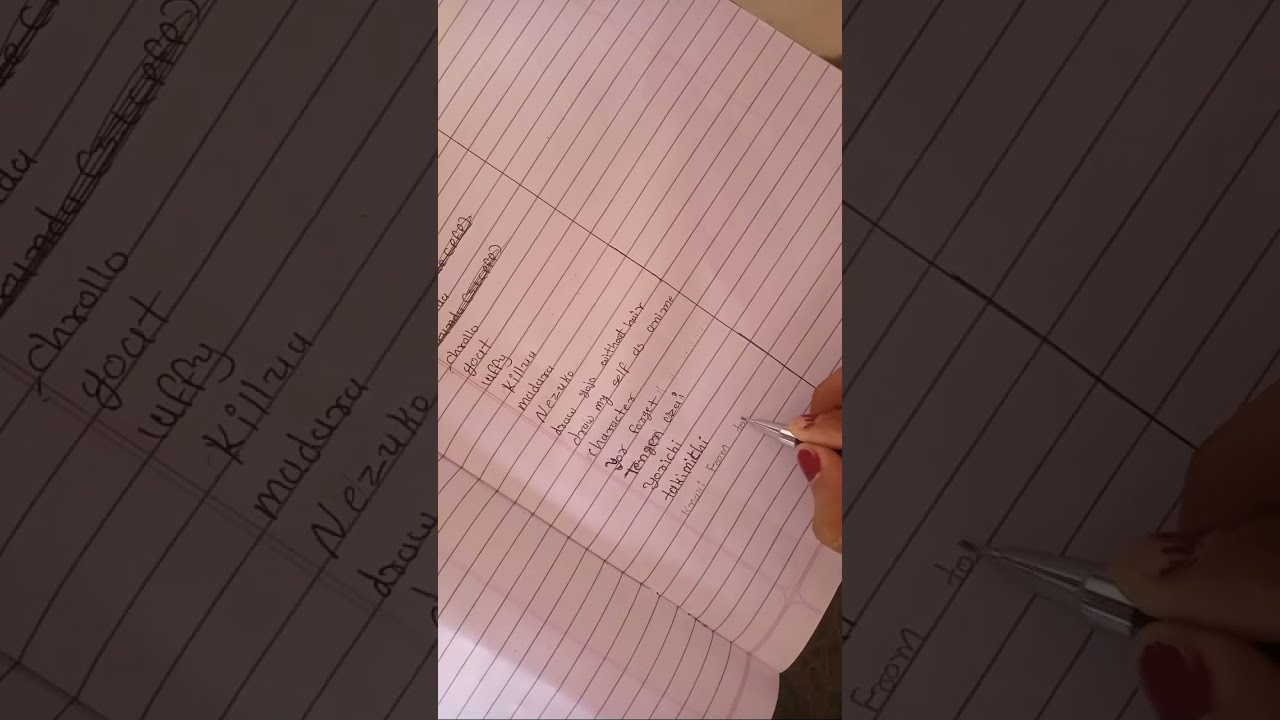 chrollo
goat
luffy
Killuu
madara
Nezuko
draw jojo without hair
draw my self as anime
character
Yor forget
Tengen
Yorichi
takimithi
From to